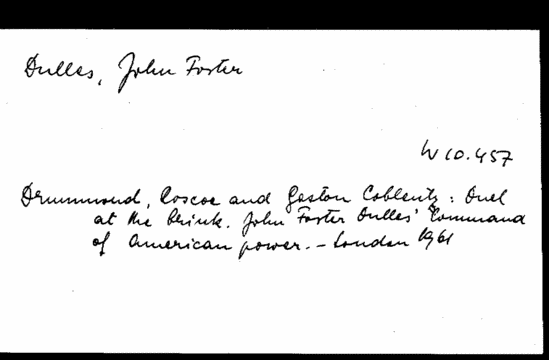 Dulles, John Foster
W 10.457
Drummond, Roscoe and Gaston Coblentz: Duel
at the brink. John Foster Dulles' Command
of American power. - London 1961